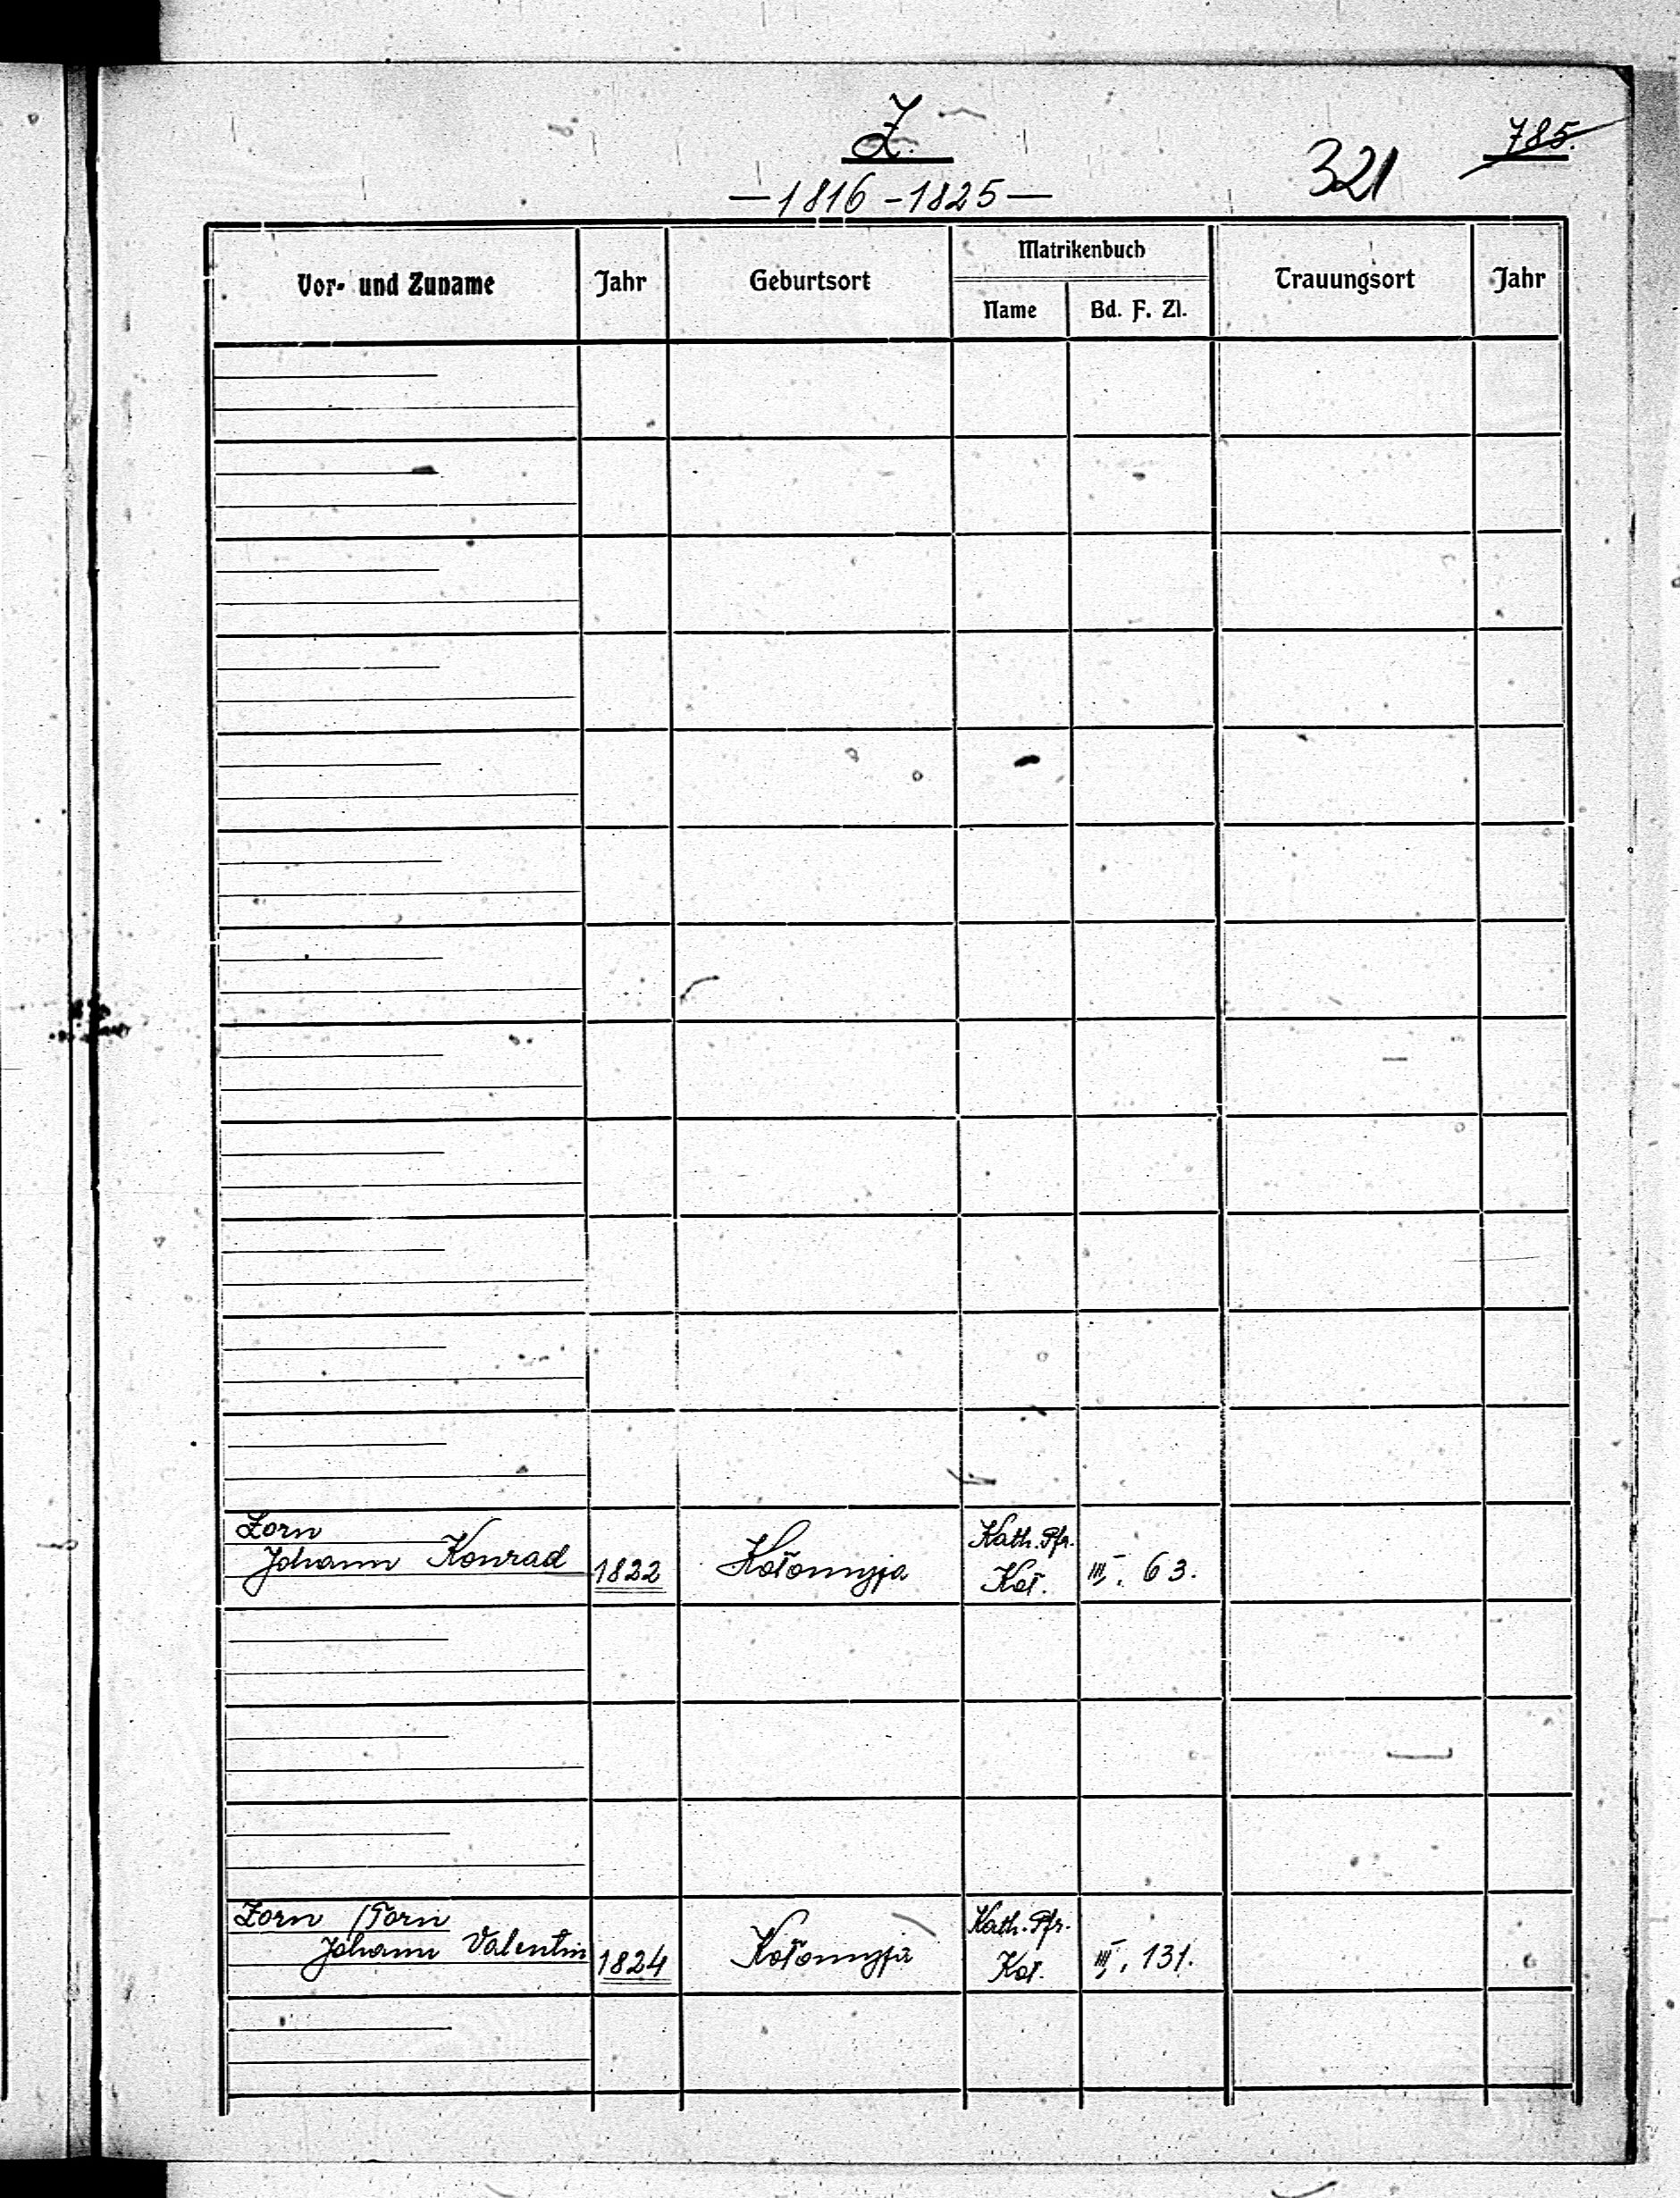 Z.
785.
321
— 1816 - 1825 —
Vor- und Zuname Jahr Geburtsort Matrikenbuch Trauungsort Jahr
Name Bd. F. Zl.
Zorn
Johann Konrad 1822 Kołomyja Kath. Pfr. Koł. III, 63.
Zorn /Torn
Johann Valentin 1824 Kołomyja Kath. Pfr. Koł. III, 131.